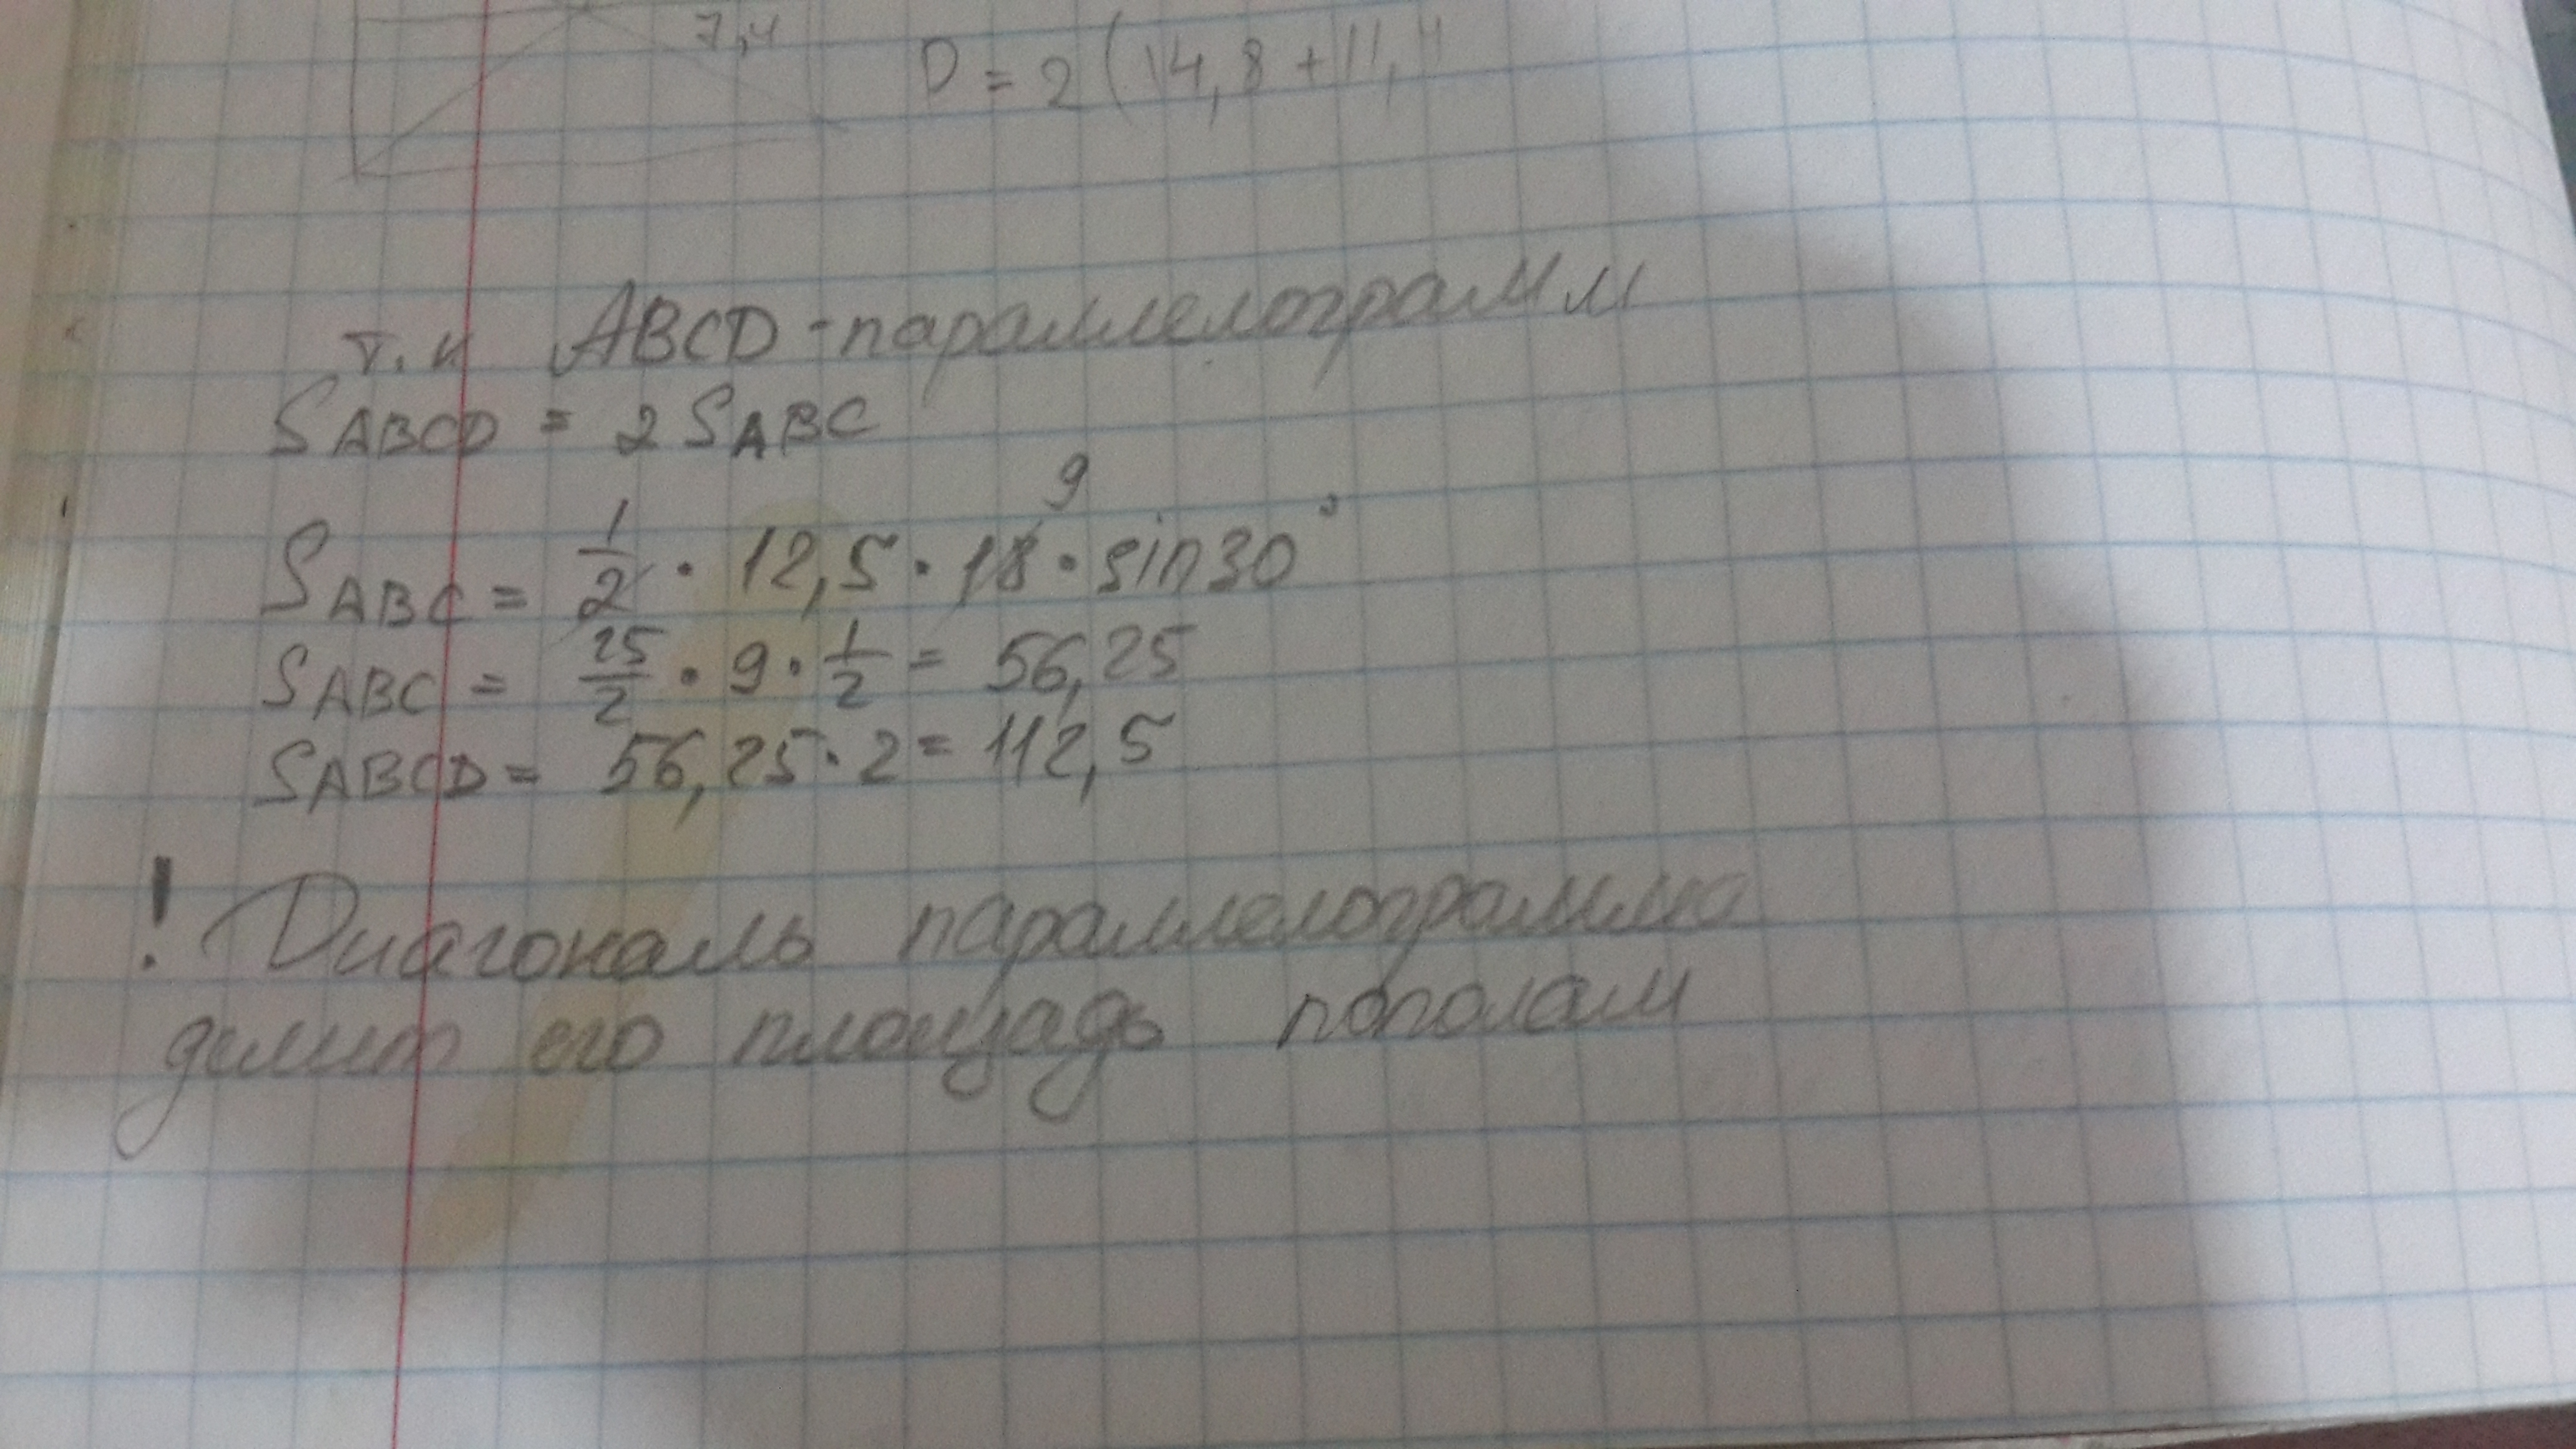 7,4
P = 2 (14,8 + 11,4
т.к ABCD - параллелограмм
SABCD = 2 SABC
9
SABC = 1/2 · 12,5 · 18 · sin30°
SABC = 25/2 · 9 · 1/2 = 56,25
SABCD = 56,25 · 2 = 112,5
! Диагональ параллелограмма
делит его площадь пополам